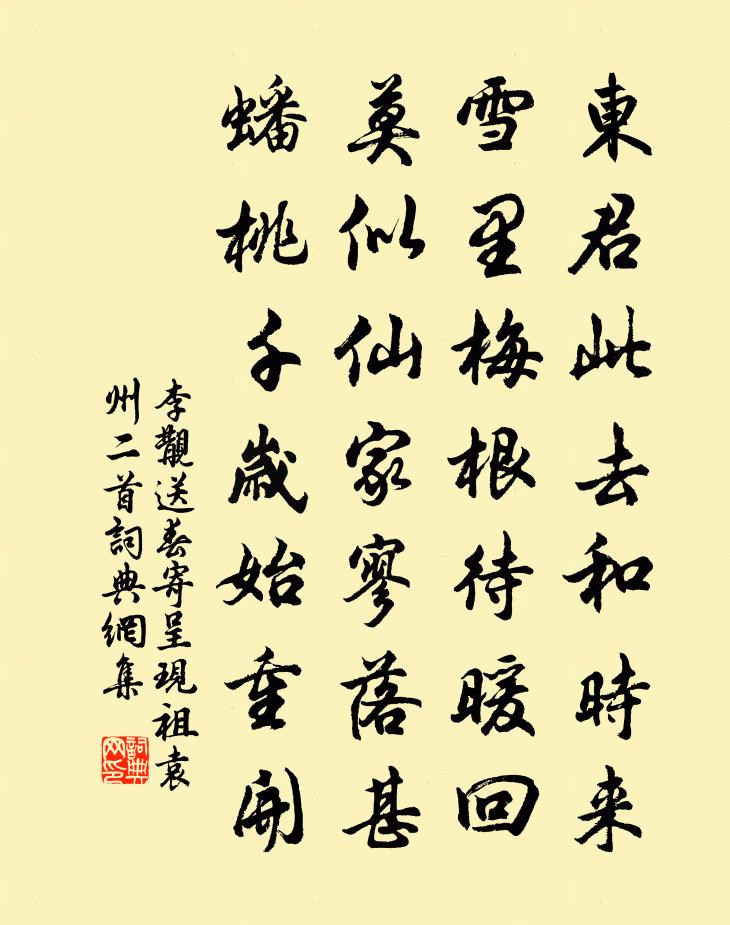 東君此去和時来
雪里梅根待暖回
莫似仙家寥落甚
蟠桃千歲始重開
李覯送春寄呈現祖袁
州二首詞典網集
詞典
网印